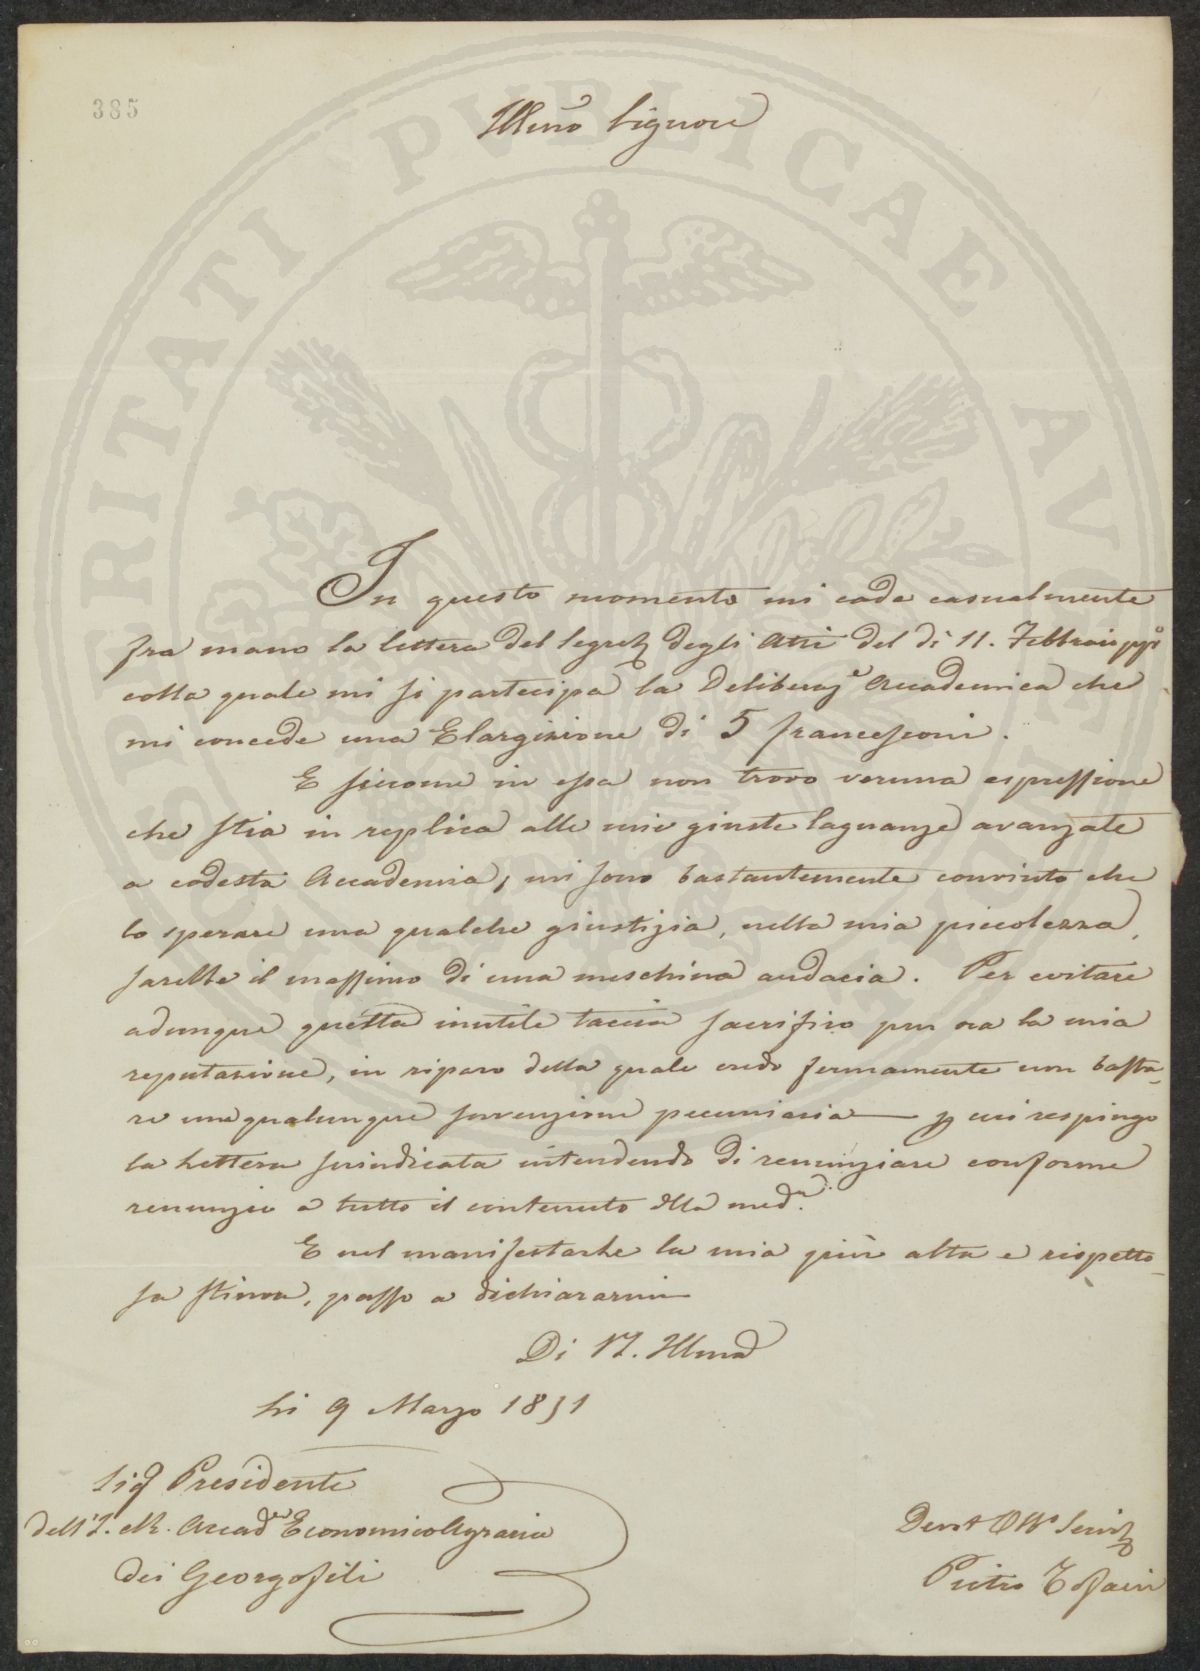 385
Illmo Signore
In questo momento mi cade casualmente
fra mano la lettera del Segret. degli Atti del dì 11. Febbraio ppo
colla quale mi si partecipa la Deliberaze Accademica che
mi concede una Elargizione di 5 francesconi.
E siccome in essa non trovo veruna espressione
che stia in replica alle mie giuste lagnanze avanzate
a codesta Accademia, mi sono bastantemente convinto che
lo sperare una qualche giustizia, nella mia piccolezza,
sarebbe il massimo di una meschina audacia. Per evitare
adunque questa inutile taccia sacrifico pur ora la mia
reputazione, in riparo della quale credo fermamente non basta-
re una qualunque sovvenzione pecuniaria — e cui respingo
la Lettera suindicata intendendo di renunziare conforme
renunzio a tutto il contenuto della meda.
E nel manifestarle la mia più alta e rispetto-
sa stima, passo a dichiararmi
Di V. S. Illma
Li 9 Marzo 1851
Sig Presidente
dell' I. e R. Accade EconomicoAgraria
dei Georgofili
Devot Obbo Servit
Pietro